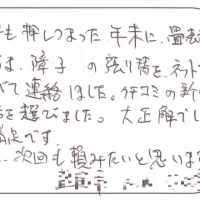 も押しつまった年末に、畳表
は、障子の張り替を、ネット
べて連絡しました。クチコミの
を選びました。大正解でし
満足です
次回も頼みたいと思いま